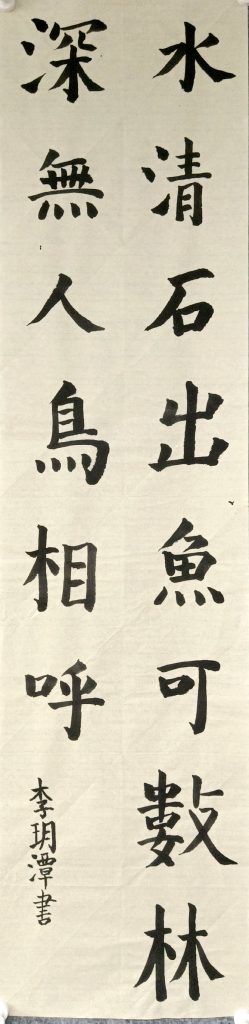 水清石出魚可數林
深無人鳥相呼
李玥潭書